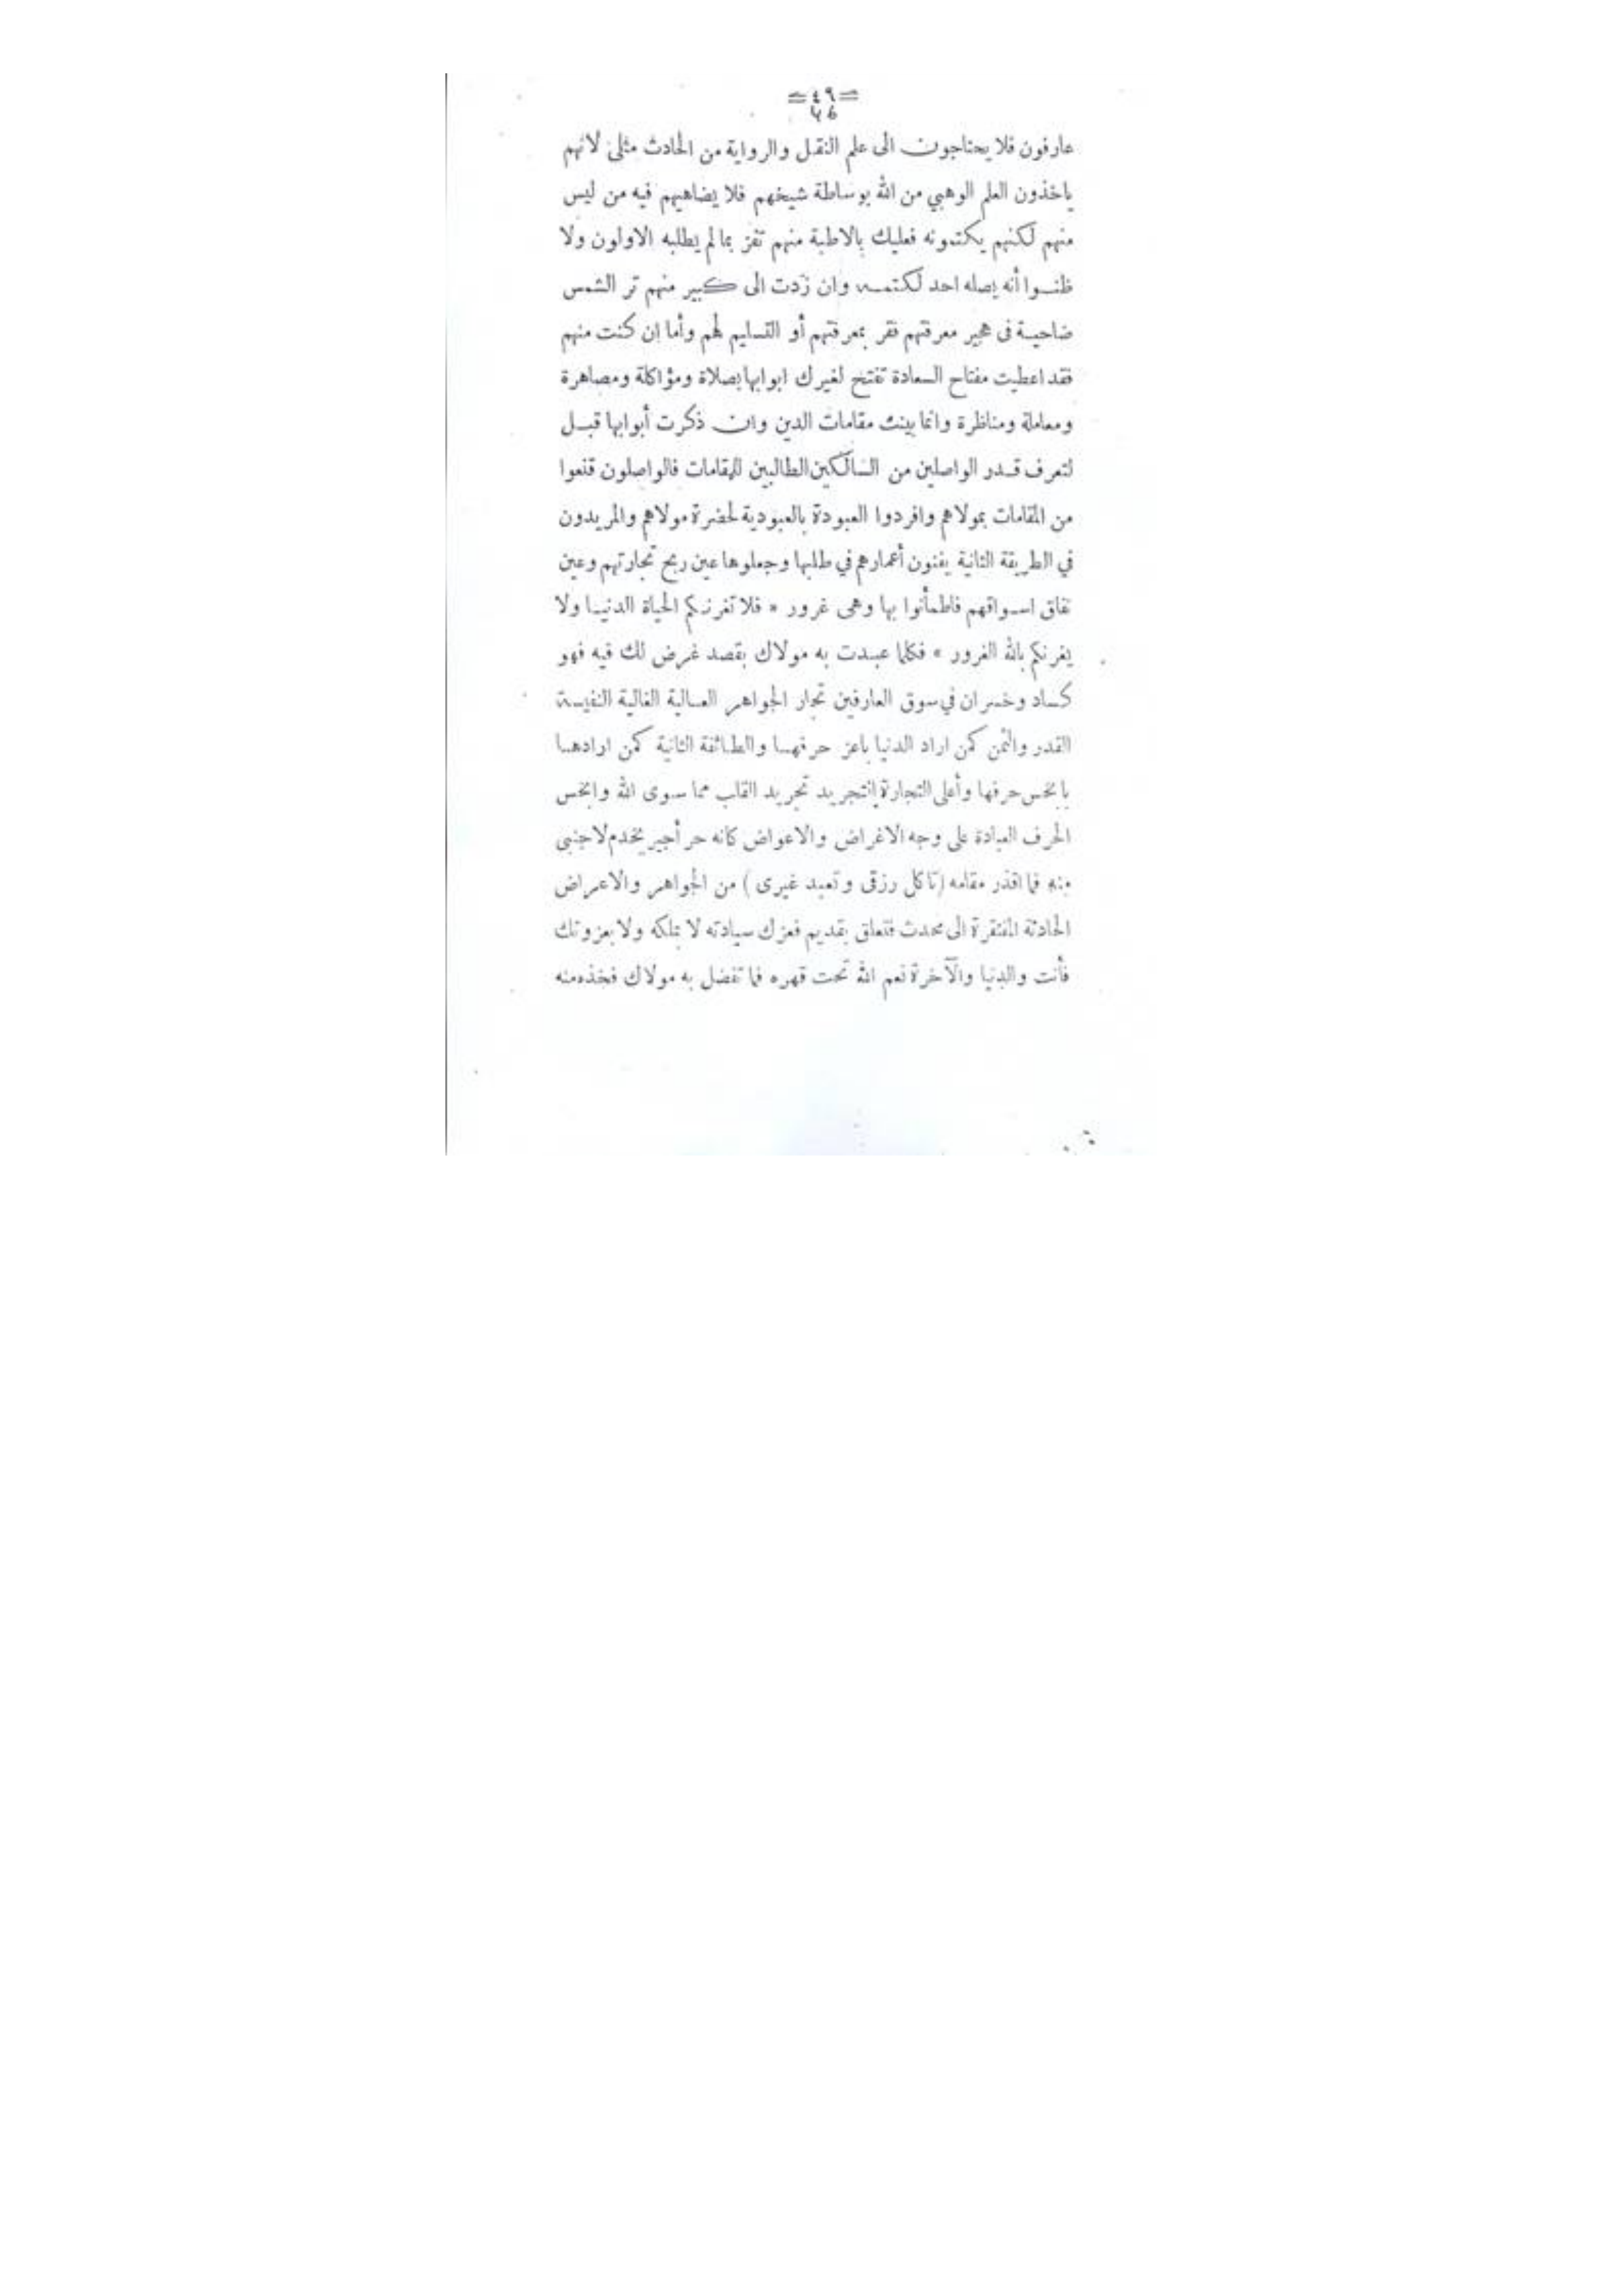 = ٤٩ =
46
عارفون فلا يحتاجون الى علم النقل والرواية من الحادث مثلى لانهم
ياخذون العلم الوهبي من الله بوساطة شيخهم فلا يضاهيهم فيه من ليس
منهم لكنهم يكتمونه فعليك بالاطبة منهم تفز بمالم يطلبه الاولون ولا
ظنوا أنه يصله احد لكتمه وان زدت الى كبير منهم تر الشمس
ضاحية فى هجير معرفتهم فقر بمعرفتهم أو التسليم لهم وأما إن كنت منهم
فقد اعطيت مفتاح السعادة تفتح لغيرك ابوابها بصلاة ومؤاكلة ومصاهرة
ومعاملة ومناظرة وانما بينت مقامات الدين وان ذكرت أبوابها قبل
لتعرف قدر الواصلين من السالكين الطالبين للمقامات فالواصلون قنعوا
من المقامات بمولاهم وافردوا العبودة بالعبودية لحضرة مولاهم والمريدون
في الطريقة الثانية يفنون أعمارهم في طلبها وجعلوها عين ربح تجارتهم وعين
نفاق اسواقهم فاطمأنوا بها وهى غرور « فلا تغرنكم الحياة الدنيا ولا
يغرنكم بالله الغرور » فكلما عبدت به مولاك بقصد غرض لك فيه فهو
كساد وخسران في سوق العارفين تجار الجواهر العالية الغالية النفيسة
القدر والثمن كمن اراد الدنيا باعز حرفها والطائفة الثانية كمن ارادها
بابخس حرفها وأعلى التجارة التجريد تجريد القلب مما سوى الله وابخس
الحرف العبادة على وجه الاغراض والاعواض كانه حر أجير يخدم لاجنبى
منه فما اقذر مقامه (تاكل رزقى وتعبد غيرى) من الجواهر والاعراض
الحادثة المفتقرة الى محدث فتعلق بقديم فعزك سيادته لا بملكه ولا بعزوتك
فأنت والدنيا والآخرة نعم الله تحت قهره فما تفضل به مولاك فخذه منه